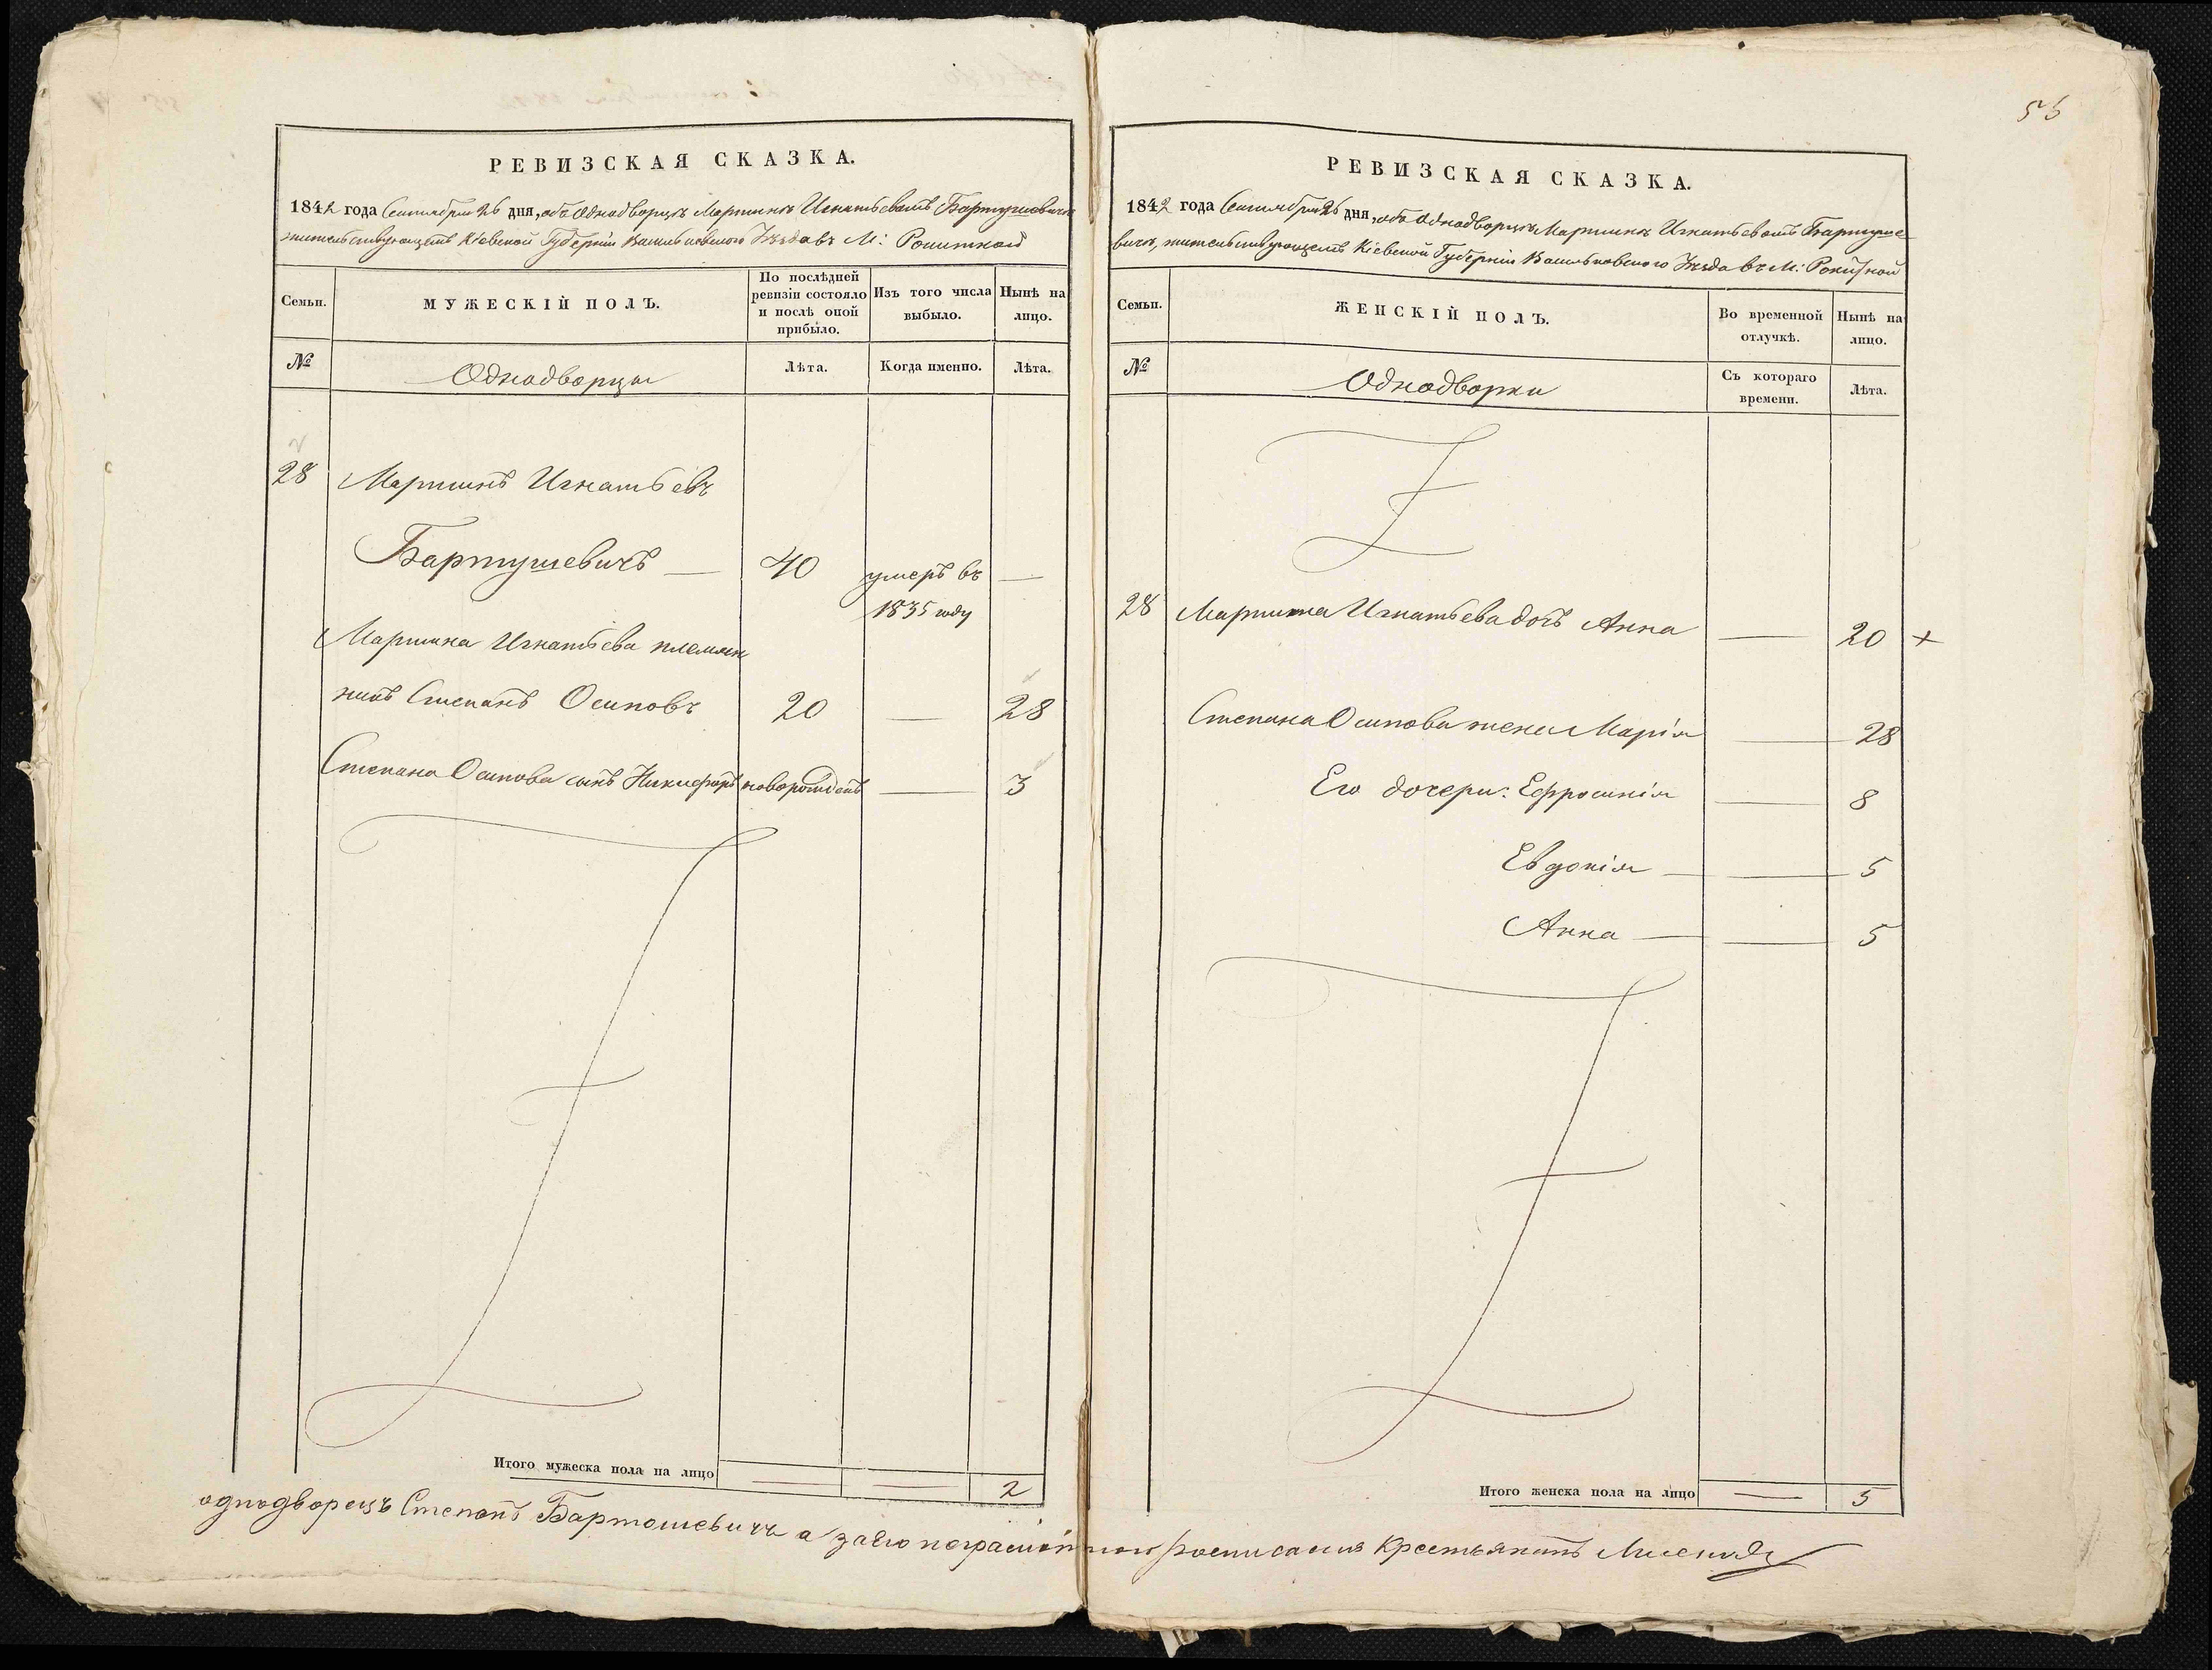 55
РЕВИЗСКАЯ СКАЗКА.
1842 года Сентября 26 дня, объ Однодворцѣ Мартинѣ Игнатьевомъ Бартушевичѣ
жительствующемъ Кіевской Губерніи Васильковскаго Уѣзда въ М: Рокитной
Семьи.
МУЖЕСКІЙ ПОЛЪ.
По послѣдней ревизіи состояло и послѣ оной прибыло.
Изъ того числа выбыло.
Нынѣ на лицо.
№
Однодворцы
Лѣта.
Когда именно.
Лѣта.
28 Мартинъ Игнатьевъ
Бартушевичъ — 40 умеръ въ —
1835 году
Мартина Игнатьева племян
никъ Степанъ Осиповъ 20 — 28
Степана Осипова сынъ Никифоръ новорожденъ — 3
Итого мужеска пола на лицо — — 2
РЕВИЗСКАЯ СКАЗКА.
1842 года Сентября 26 дня, объ Однодворцѣ Мартинѣ Игнатьевомъ Бартуше
вичѣ, жительствующемъ Кіевской Губерніи Васильковскаго Уѣзда въ М: Рокитной
Семьи.
ЖЕНСКІЙ ПОЛЪ.
Во временной отлучкѣ.
Нынѣ на лицо.
№
Однодворки
Съ котораго времени.
Лѣта.
28 Мартина Игнатьева дочь Анна — 20 +
Степана Осипова жена Марія — 28
Его дочери: Ефросинія — 8
Евдокія — — 5
Анна — — 5
Итого женска пола на лицо — 5
однодворецъ Степанъ Бартошевичъ а за его росписался Крестьянинъ